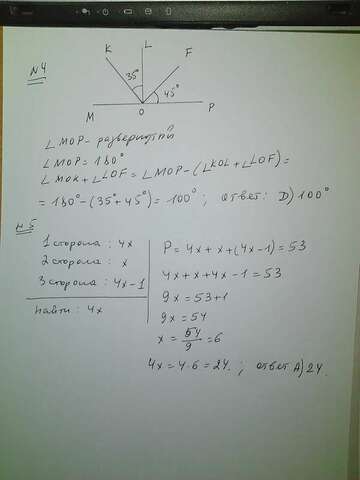 N4
K L F
35° 45°
M O P
∠MOP - развернутый
∠MOP = 180°
∠MOK + ∠LOF = ∠MOP - (∠KOL + ∠LOF) =
= 180° - (35° + 45°) = 100° ; ответ: D) 100°
N5
1 сторона : 4x
2 сторона : x
3 сторона : 4x - 1
найти : 4x
P = 4x + x + (4x - 1) = 53
4x + x + 4x - 1 = 53
9x = 53 + 1
9x = 54
x = 54/9 = 6
4x = 4 · 6 = 24. ; ответ A) 24.